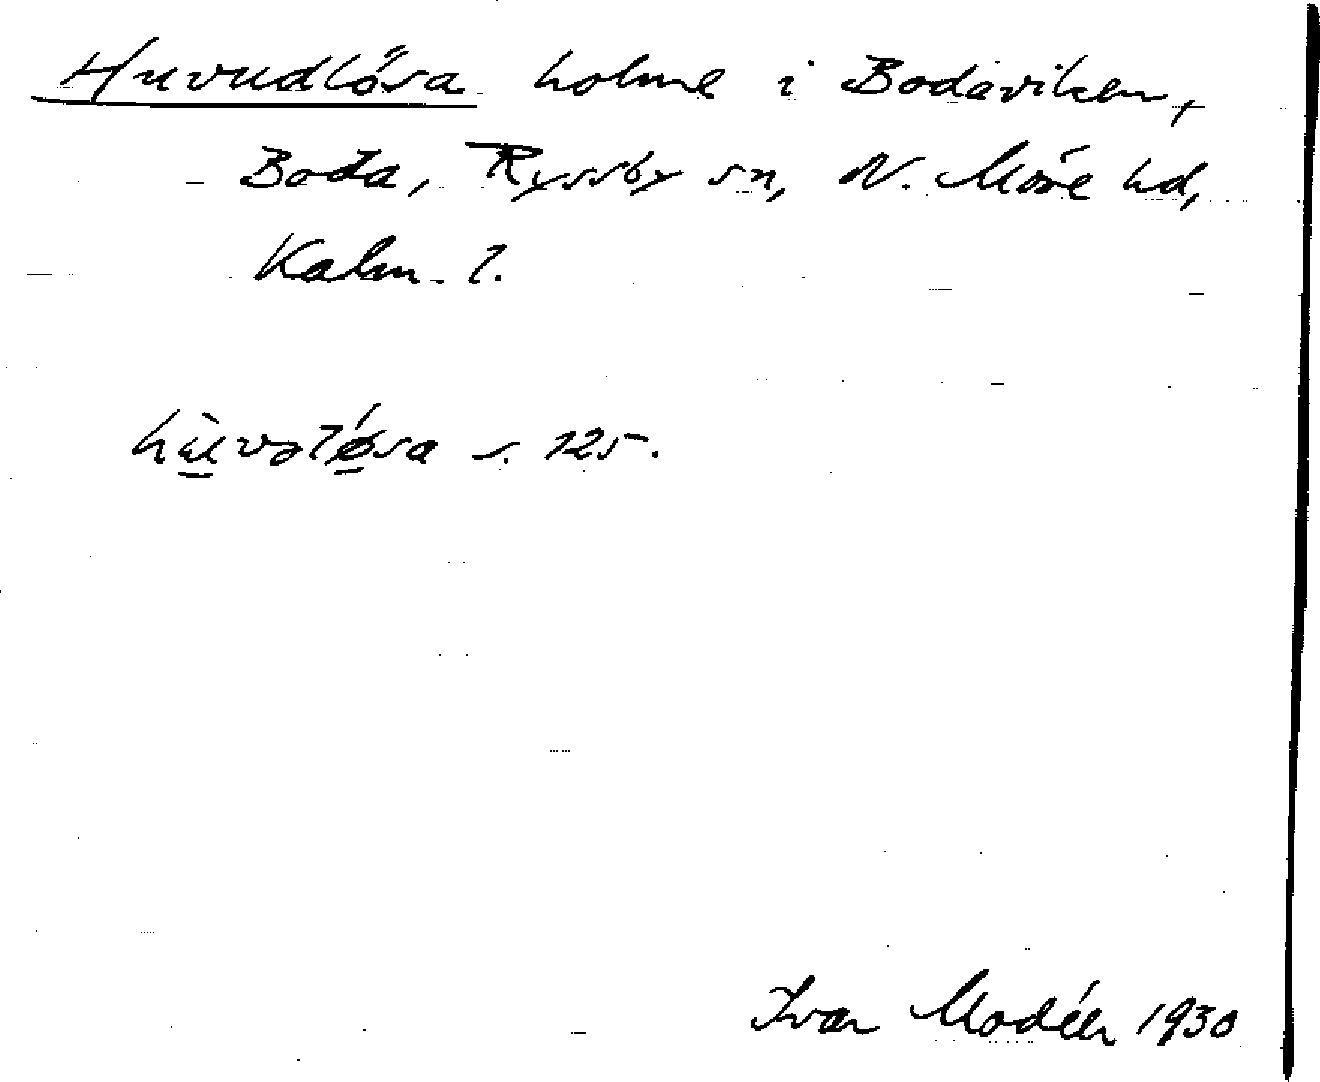 Huvudlösa holme i Bodaviken,
Boda, Ryssby sn, N. Möre hd,
Kalm. l.
hùvəlǿsa s. 125.
Ivar Modéer 1930